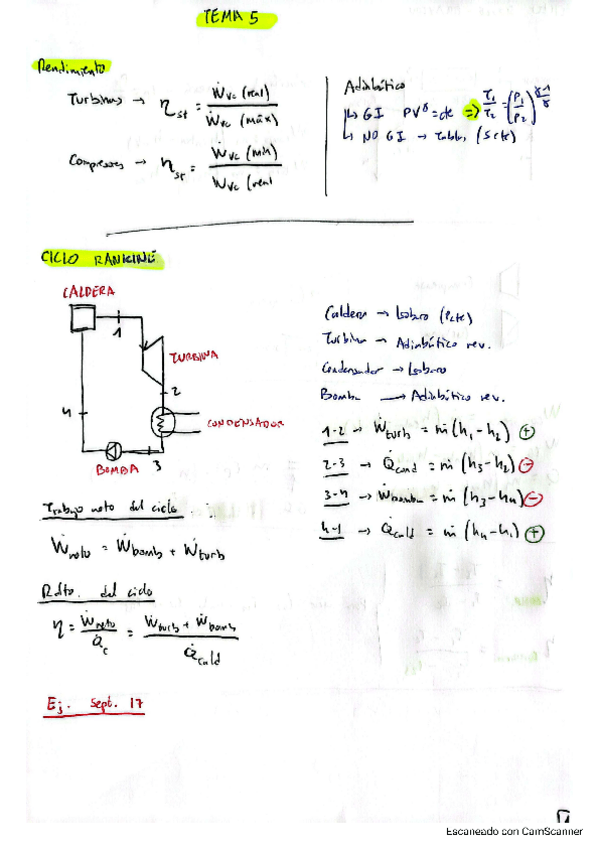 TEMA 5
Rendimiento
Turbinas → η_st = Ẇvc (real) / Ẇvc (máx)
Compresores → η_st = Ẇvc (mín) / Ẇvc (real
Adiabático
↳ GI PV^γ = cte ⇒ T₁/T₂ = (P₁/P₂)^(γ-1/γ)
↳ NO GI → tablas (s cte)
CICLO RANKINE
CALDERA
1
TURBINA
2
4
CONDENSADOR
BOMBA
3
Caldera → Isobaro (P cte)
Turbina → Adiabático rev.
Condensador → Isobaro
Bomba → Adiabático rev.
1-2 → Ẇturb = ṁ (h₁-h₂) ⊕
2-3 → Q̇cond = ṁ (h₃-h₂) ⊖
3-4 → Ẇbomba = ṁ (h₃-h₄) ⊖
4-1 → Q̇cald = ṁ (h₄-h₁) ⊕
Trabajo neto del ciclo
Ẇneto = Ẇbomb + Ẇturb
Rdto. del ciclo
η = Ẇneto / Q̇c = Ẇturb + Ẇbomb / Q̇cald
Ej. Sept. 17
Escaneado con CamScanner